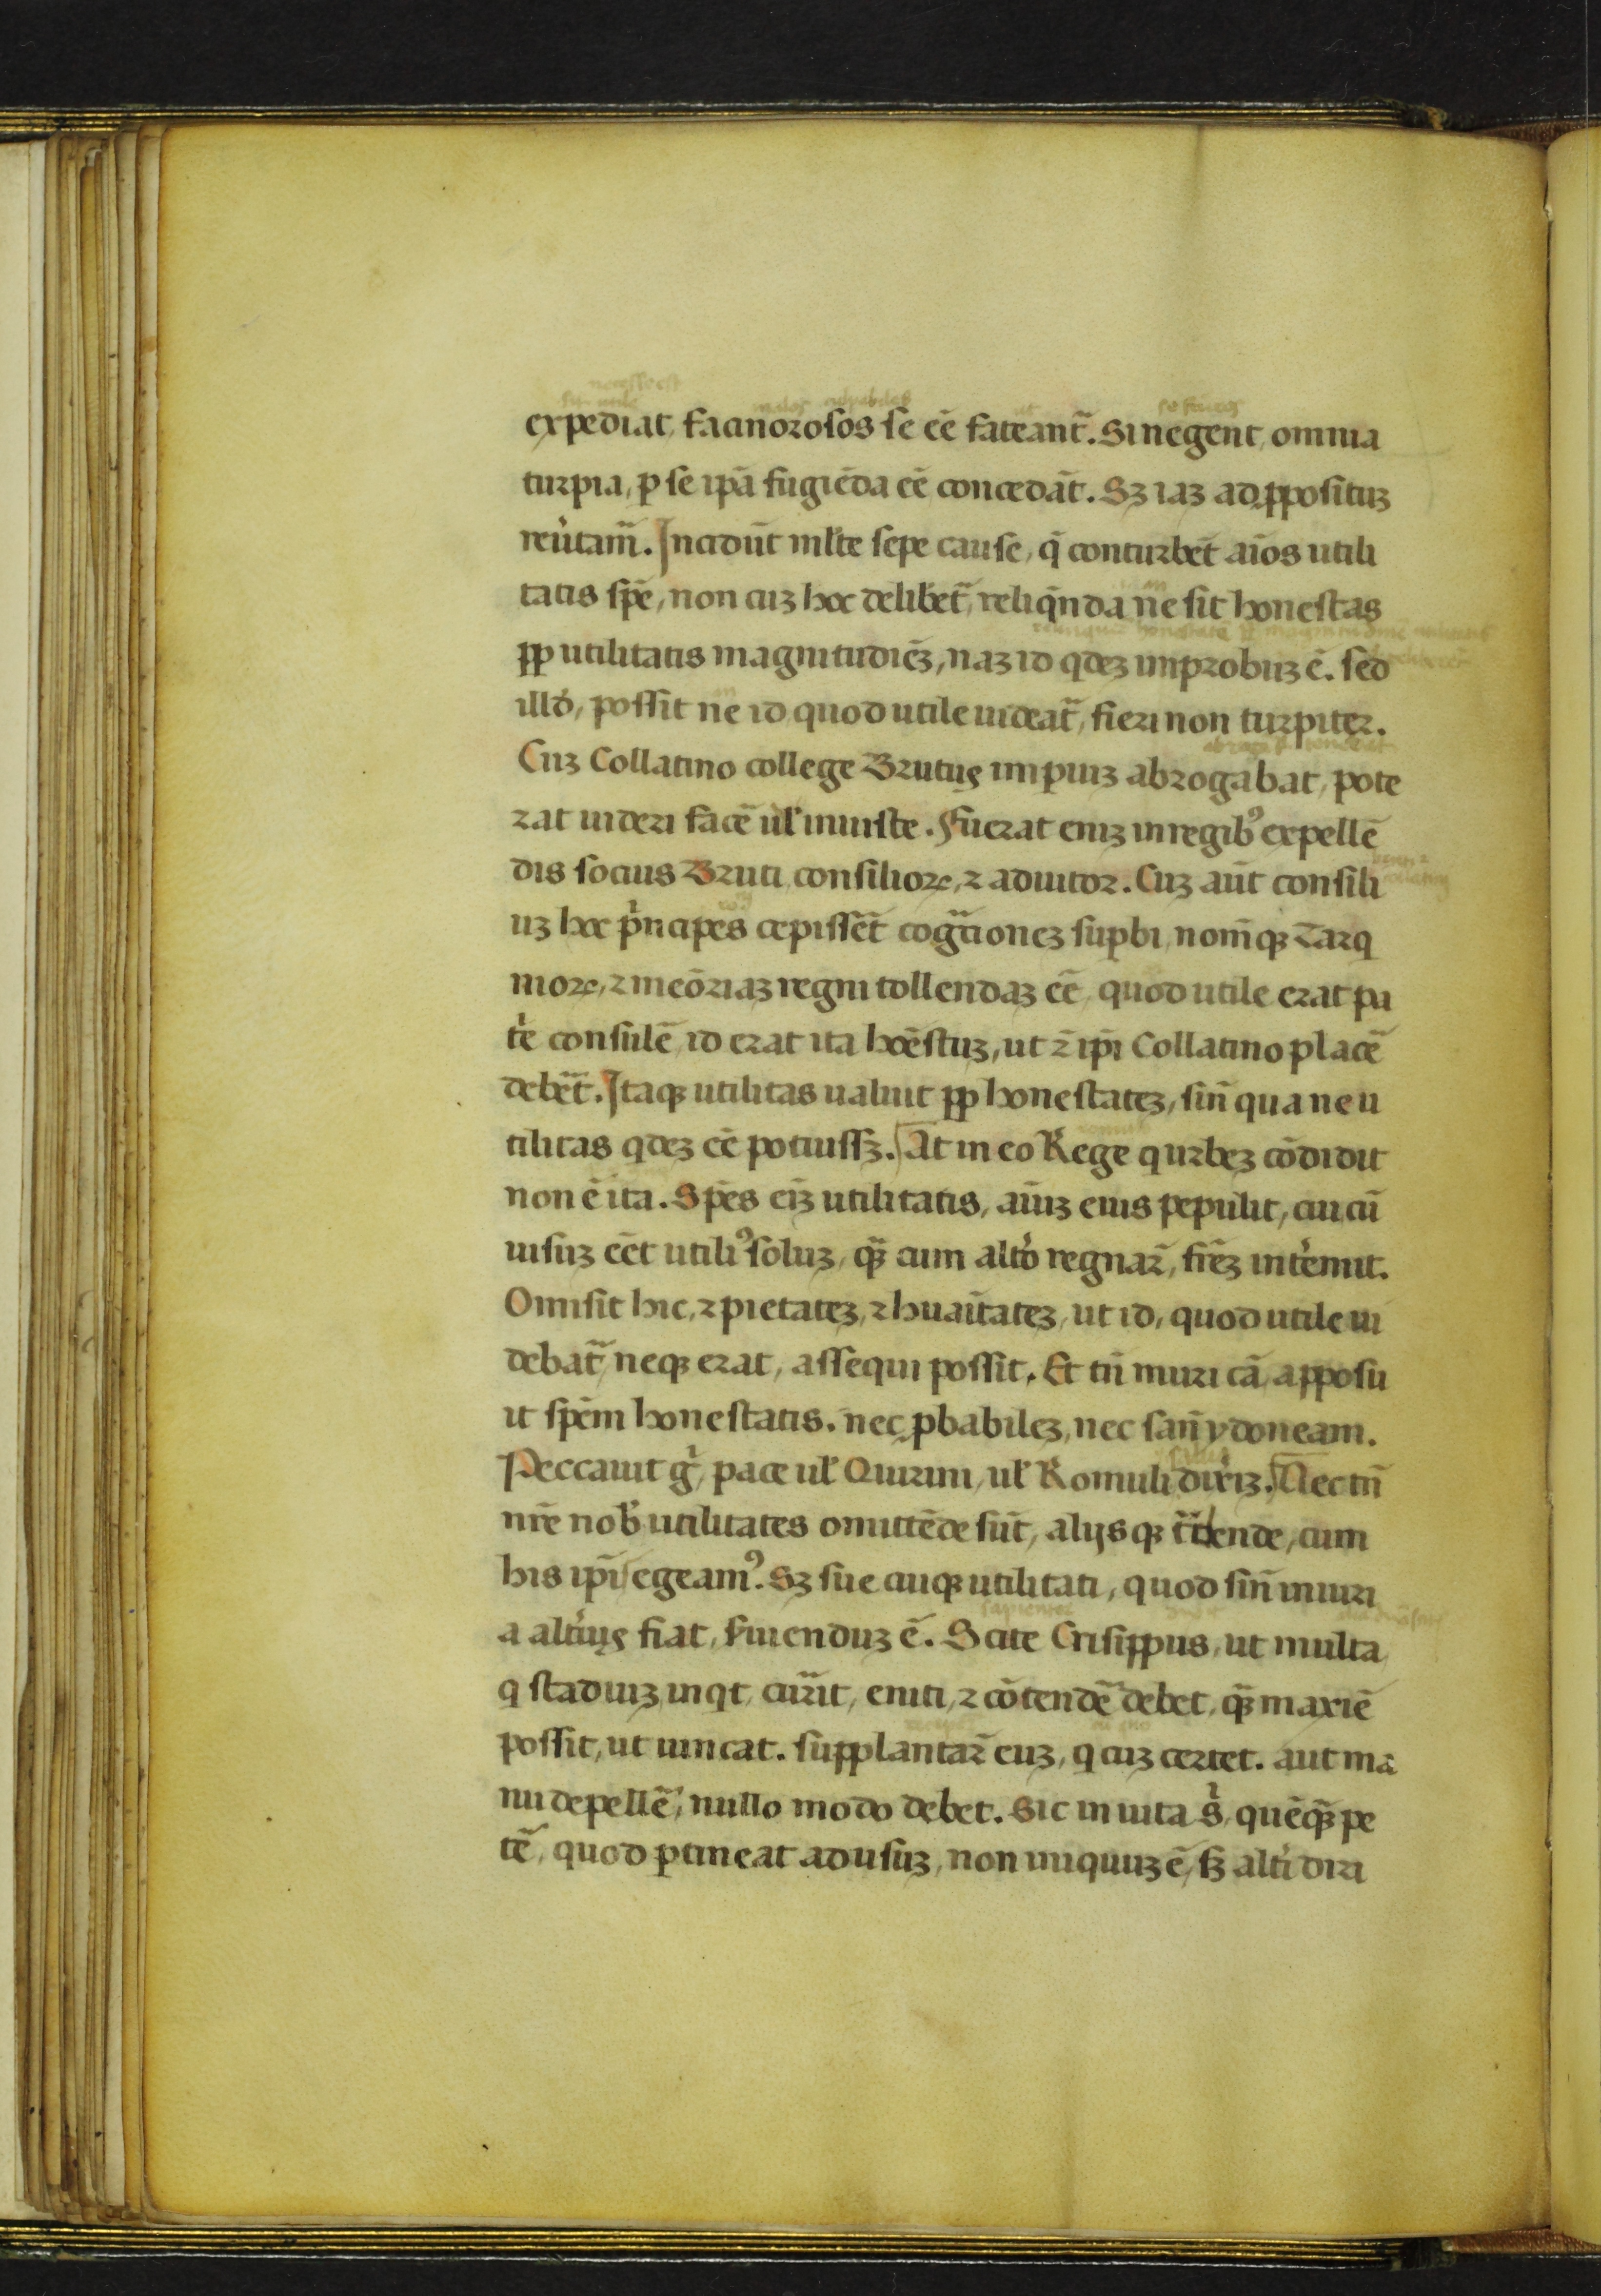 expediat, facinorosos se eē fateant̃. Si negent, omnia
turpia, ꝑ se ipā fugiēda eē concedāt. Sꝫ iaꝫ ad ꝓposituꝫ
reu̓tam̃. Incidūt ml̓te sepe cause, q̄ conturbēt aīos utili
tatis spē, non cuꝫ hoc delibet̃, reliq̄nda ne sit honestas
ꝓp utilitatis magnitudiēꝫ, naꝫ id qdeꝫ improbuꝫ ē. sed
illđ, possit ne id quod utile uideat̃, fieri non turpiter.
Cuꝫ Collatino college Brutus imp̱iuꝫ abrogabat, pote
rat uideri facē ul̓ iniuste. Fuerat eniꝫ in regibꝰ expellē
dis socius Bruti consilioꝝ, ⁊ adiutor. Cuꝫ aūt consili
uꝫ hoc pͥncipes cepissēt cogͣtioneꝫ suꝑbi, nom̄qꝫ Tarq
nioꝝ, ⁊ meōriaꝫ regni tollendaꝫ eē, quod utile erat pa
tͥe consulē, id erat ita hoēstuꝫ, ut ⁊ ip̄i Collatino placē
debēt̃. Itaqꝫ utilitas ualuit ꝓp honestateꝫ, sin̄ qua ne u
tilitas qdeꝫ eē potuissꝫ. At in eo Rege q urbeꝫ cōdidit
non ē ita. Spēs eīꝫ utilitatis, aīuꝫ eius pepulit, cui cū
uisuꝫ eēt utiliꝰ soluꝫ, qꝫ̃ cum alt̓o regnar̄, fr̄eꝫ int̓emit.
Omisit hic, ⁊ pietateꝫ, ⁊ huaītateꝫ, ut id, quod utile ui
debat̃, neqꝫ erat, assequi possit. Et tn̄ muri cā apposu
it spēm honestatis. nec ꝓbabileꝫ, nec san̄ ydoneam.
Peccauit gͥ, pace ul̓ Quirini, ul̓ Romuli dixͥiꝫ. Nec tn̄
nr̄e nob̓ utilitates omittēde sūt, alijsqꝫ tͣdende, cum
his ip̄i egeamꝰ. Sꝫ sue cuiqꝫ utilitati, quod sin̄ iniuri
a alt̓ius fiat, s̓uienduꝫ ē. Scite Crisippus, ut multa
q stadiuꝫ inqt, curͥit, eniti, ⁊ cōtendē debet, qꝫ̃ maxiē
possit, ut uincat. supplantar̄ euꝫ, q cuꝫ certet. aut ma
nu depellē, nullo modo debet. Sic in uita sͥ, quēqꝫ̃ pe
tē, quod ꝑtineat ad usuꝫ, non iniquuꝫ ē, sꝫ alt̓i diri